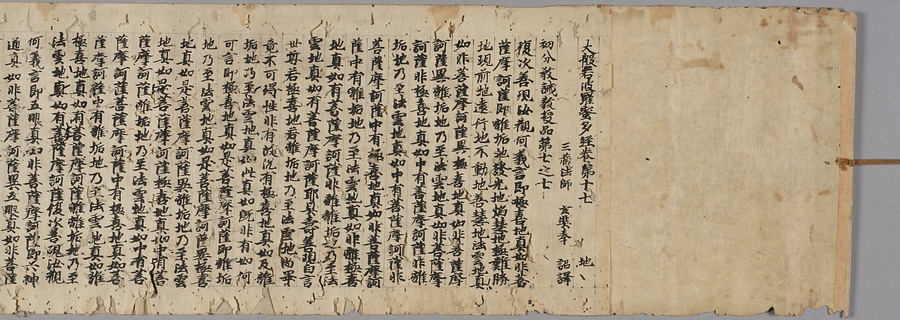 大般若波羅蜜多經卷第十七 地
三藏法師 玄奘奉 詔譯
初分教誡教授品第七之七
復次善現汝觀何義言即極喜地真如非菩
薩摩訶薩即離垢地發光地焰慧地極難勝
地現前地遠行地不動地善慧地法雲地真
如非菩薩摩訶薩異極喜地真如非菩薩摩
訶薩異離垢地乃至法雲地真如非菩薩摩
訶薩非極喜地真如中有菩薩摩訶薩非離
垢地乃至法雲地真如中有菩薩摩訶薩非
菩薩摩訶薩中有極喜地真如非菩薩摩訶
薩中有離垢地乃至法雲地真如非離極喜
地真如有菩薩摩訶薩非離離垢地乃至法
雲地真如有菩薩摩訶薩耶具壽善現白言
世尊若極喜地若離垢地乃至法雲地尚畢
竟不可得性非有故況有極喜地真如及離
垢地乃至法雲地真如此真如既非有如何
可言即極喜地真如是菩薩摩訶薩即離垢
地乃至法雲地真如是菩薩摩訶薩異極喜
地真如是菩薩摩訶薩異離垢地乃至法雲
地真如是菩薩摩訶薩極喜地真如中有菩
薩摩訶薩離垢地乃至法雲地真如中有菩
薩摩訶薩菩薩摩訶薩中有極喜地真如菩
薩摩訶薩中有離垢地乃至法雲地真如離
極喜地真如有菩薩摩訶薩離離垢地乃至
法雲地真如有菩薩摩訶薩復次善現汝觀
何義言即五眼真如非菩薩摩訶薩即六神
通真如非菩薩摩訶薩異五眼真如非菩薩